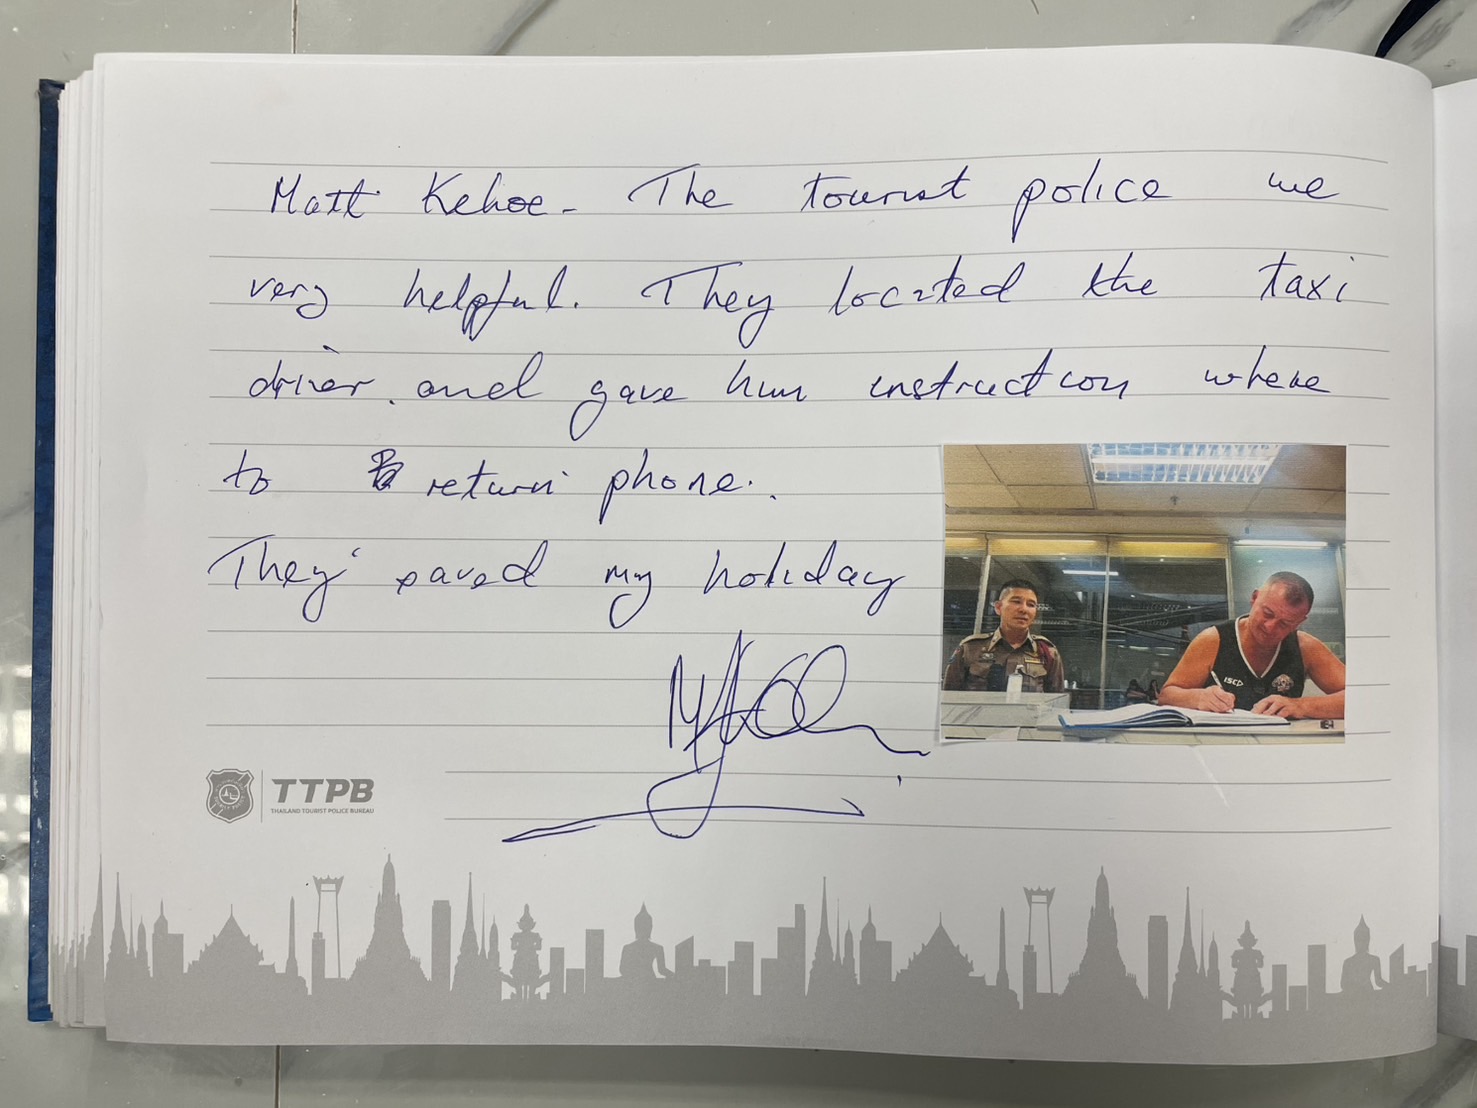 Matt Kehoe - The tourist police we
very helpful. They located the taxi
driver. and gave him instruction where
to return phone.
They saved my holiday
ISC
TTPB
THAILAND TOURIST POLICE BUREAU